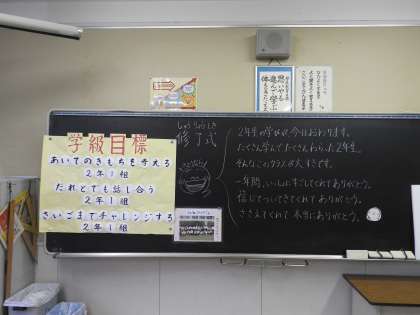 学級目標
あいてのきもちを考える
2年1組
だれとでも話し合う
2年1組
さいごまでチャレンジする
2年1組
しゅうりょうしき
修了式
2年生の学びが今日おわります。
たくさん学んでたくさんわらった2年生。
そんなこのクラスが大すきです。
一年間、いっしょにすごしてくれてありがとう。
信じてついてきてくれてありがとう。
ささえてくれて本当にありがとう。
思いやる
進んで学ぶ
体をきたえる